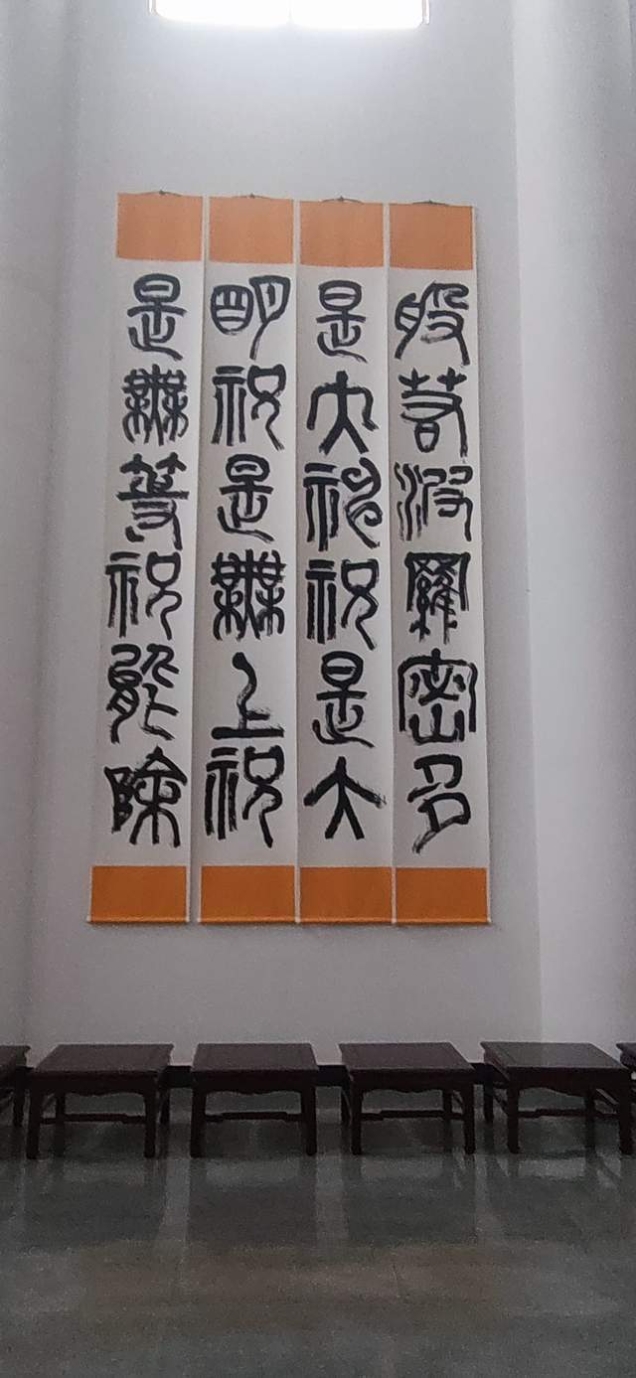 般若波羅密多
是大神祝是大
明祝是無上祝
是無等祝能除